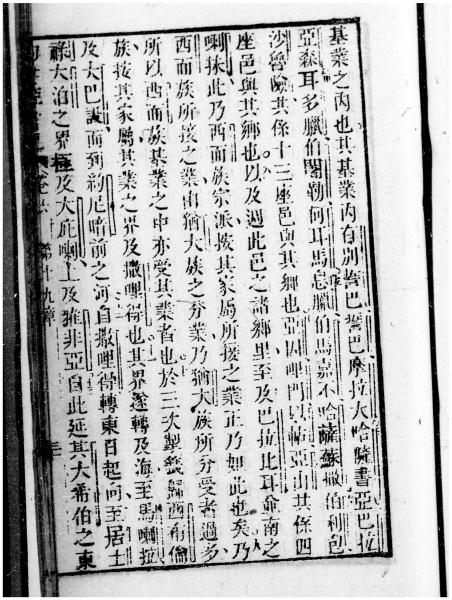 基業之內也其基業內有別誓巴誓巴摩拉大哈薩書亞巴拉
亞森耳多臘伯闍勒何耳馬息臘伯馬嘉不哈薩蘇撒伯利包
沙魯險共係十三座邑與其鄉也亞因哩門以帖亞山共係四
座邑與其鄉也以及週此邑之諸鄉里至及巴拉比耳爺南之
喇抹此乃西面族宗派按其家屬所接之業正乃如此也矣乃
西面族所接之業由猶大族之分業乃猶大族所分受者過多
所以西面族基業之中亦受其業者也於三次掣籤歸西布倫
族按其家屬其業之界及撒哩得也其界遂轉及海至馬喇拉
及大巴設而到約尼暗前之河自撒哩得轉東日起向至居士
祿大泊之界極及大庇喇上及雅非亞自此延其大希伯之東
第十九章